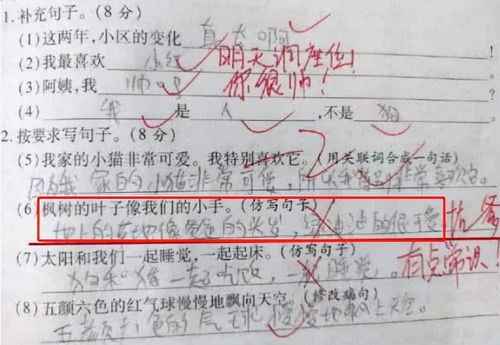 1.补充句子。(8分)
(1)这两年,小区的变化真大啊
(2)我最喜欢小红 明天调座位!
(3)阿姨,我帅吗 你很帅!
(4)我是人,不是狗
2.按要求写句子。(8分)
(5)我家的小猫非常可爱。我特别喜欢它。(用关联词合成一句话)
因为我家的小猫非常可爱,所以我非常喜欢
(6)枫树的叶子像我们的小手。(仿写句子)
地上的草地像爸爸的头发,
(7)太阳和我们一起睡觉,一起起床。(仿写句子)
一起睡觉。 有点常识!
(8)五颜六色的红气球慢慢地飘向天空。(修改病句)
五颜六色的气球慢慢地飘上天空。